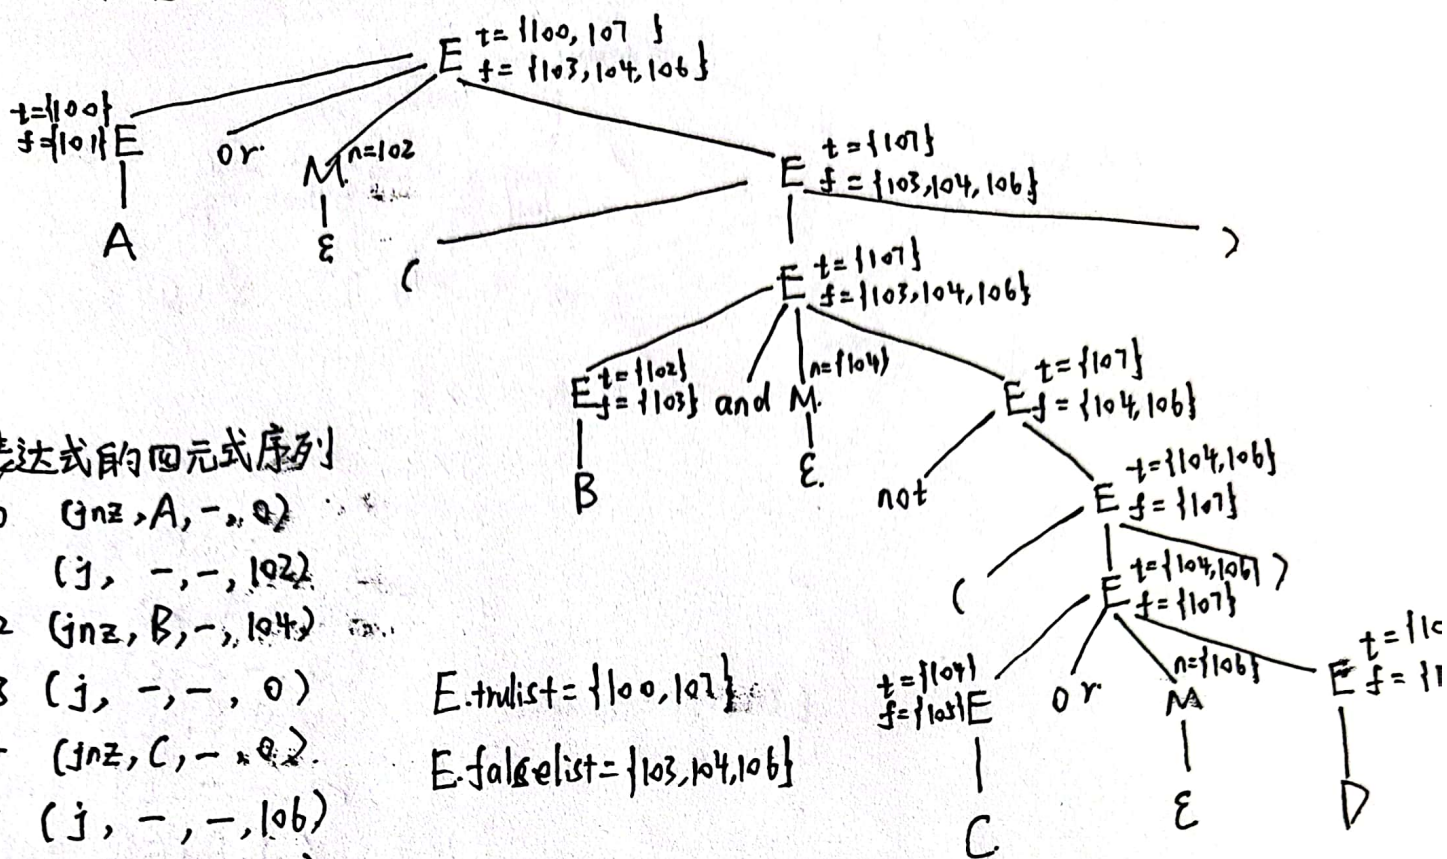 E t={100,107 }
f={103,104,106}
t={100}
f={101} E or M n=102
A ε
E t={107}
f={103,104,106}
( )
E t={107}
f={103,104,106}
E t={102}
f={103} and M n={104}
E t={107}
f={104,106}
B ε not
E t={104,106}
f={107}
( )
E t={104,106}
f={107}
t={104}
f={105} E or M n={106}
E
C ε D
达式的四元式序列
(jnz,A,-,0)
(j, -,-,102)
(jnz,B,-,104)
(j, -,-,0)
(jnz,C,-,0)
(j,-,-,106)
E.trulist={100,107}
E.falselist={103,104,106}